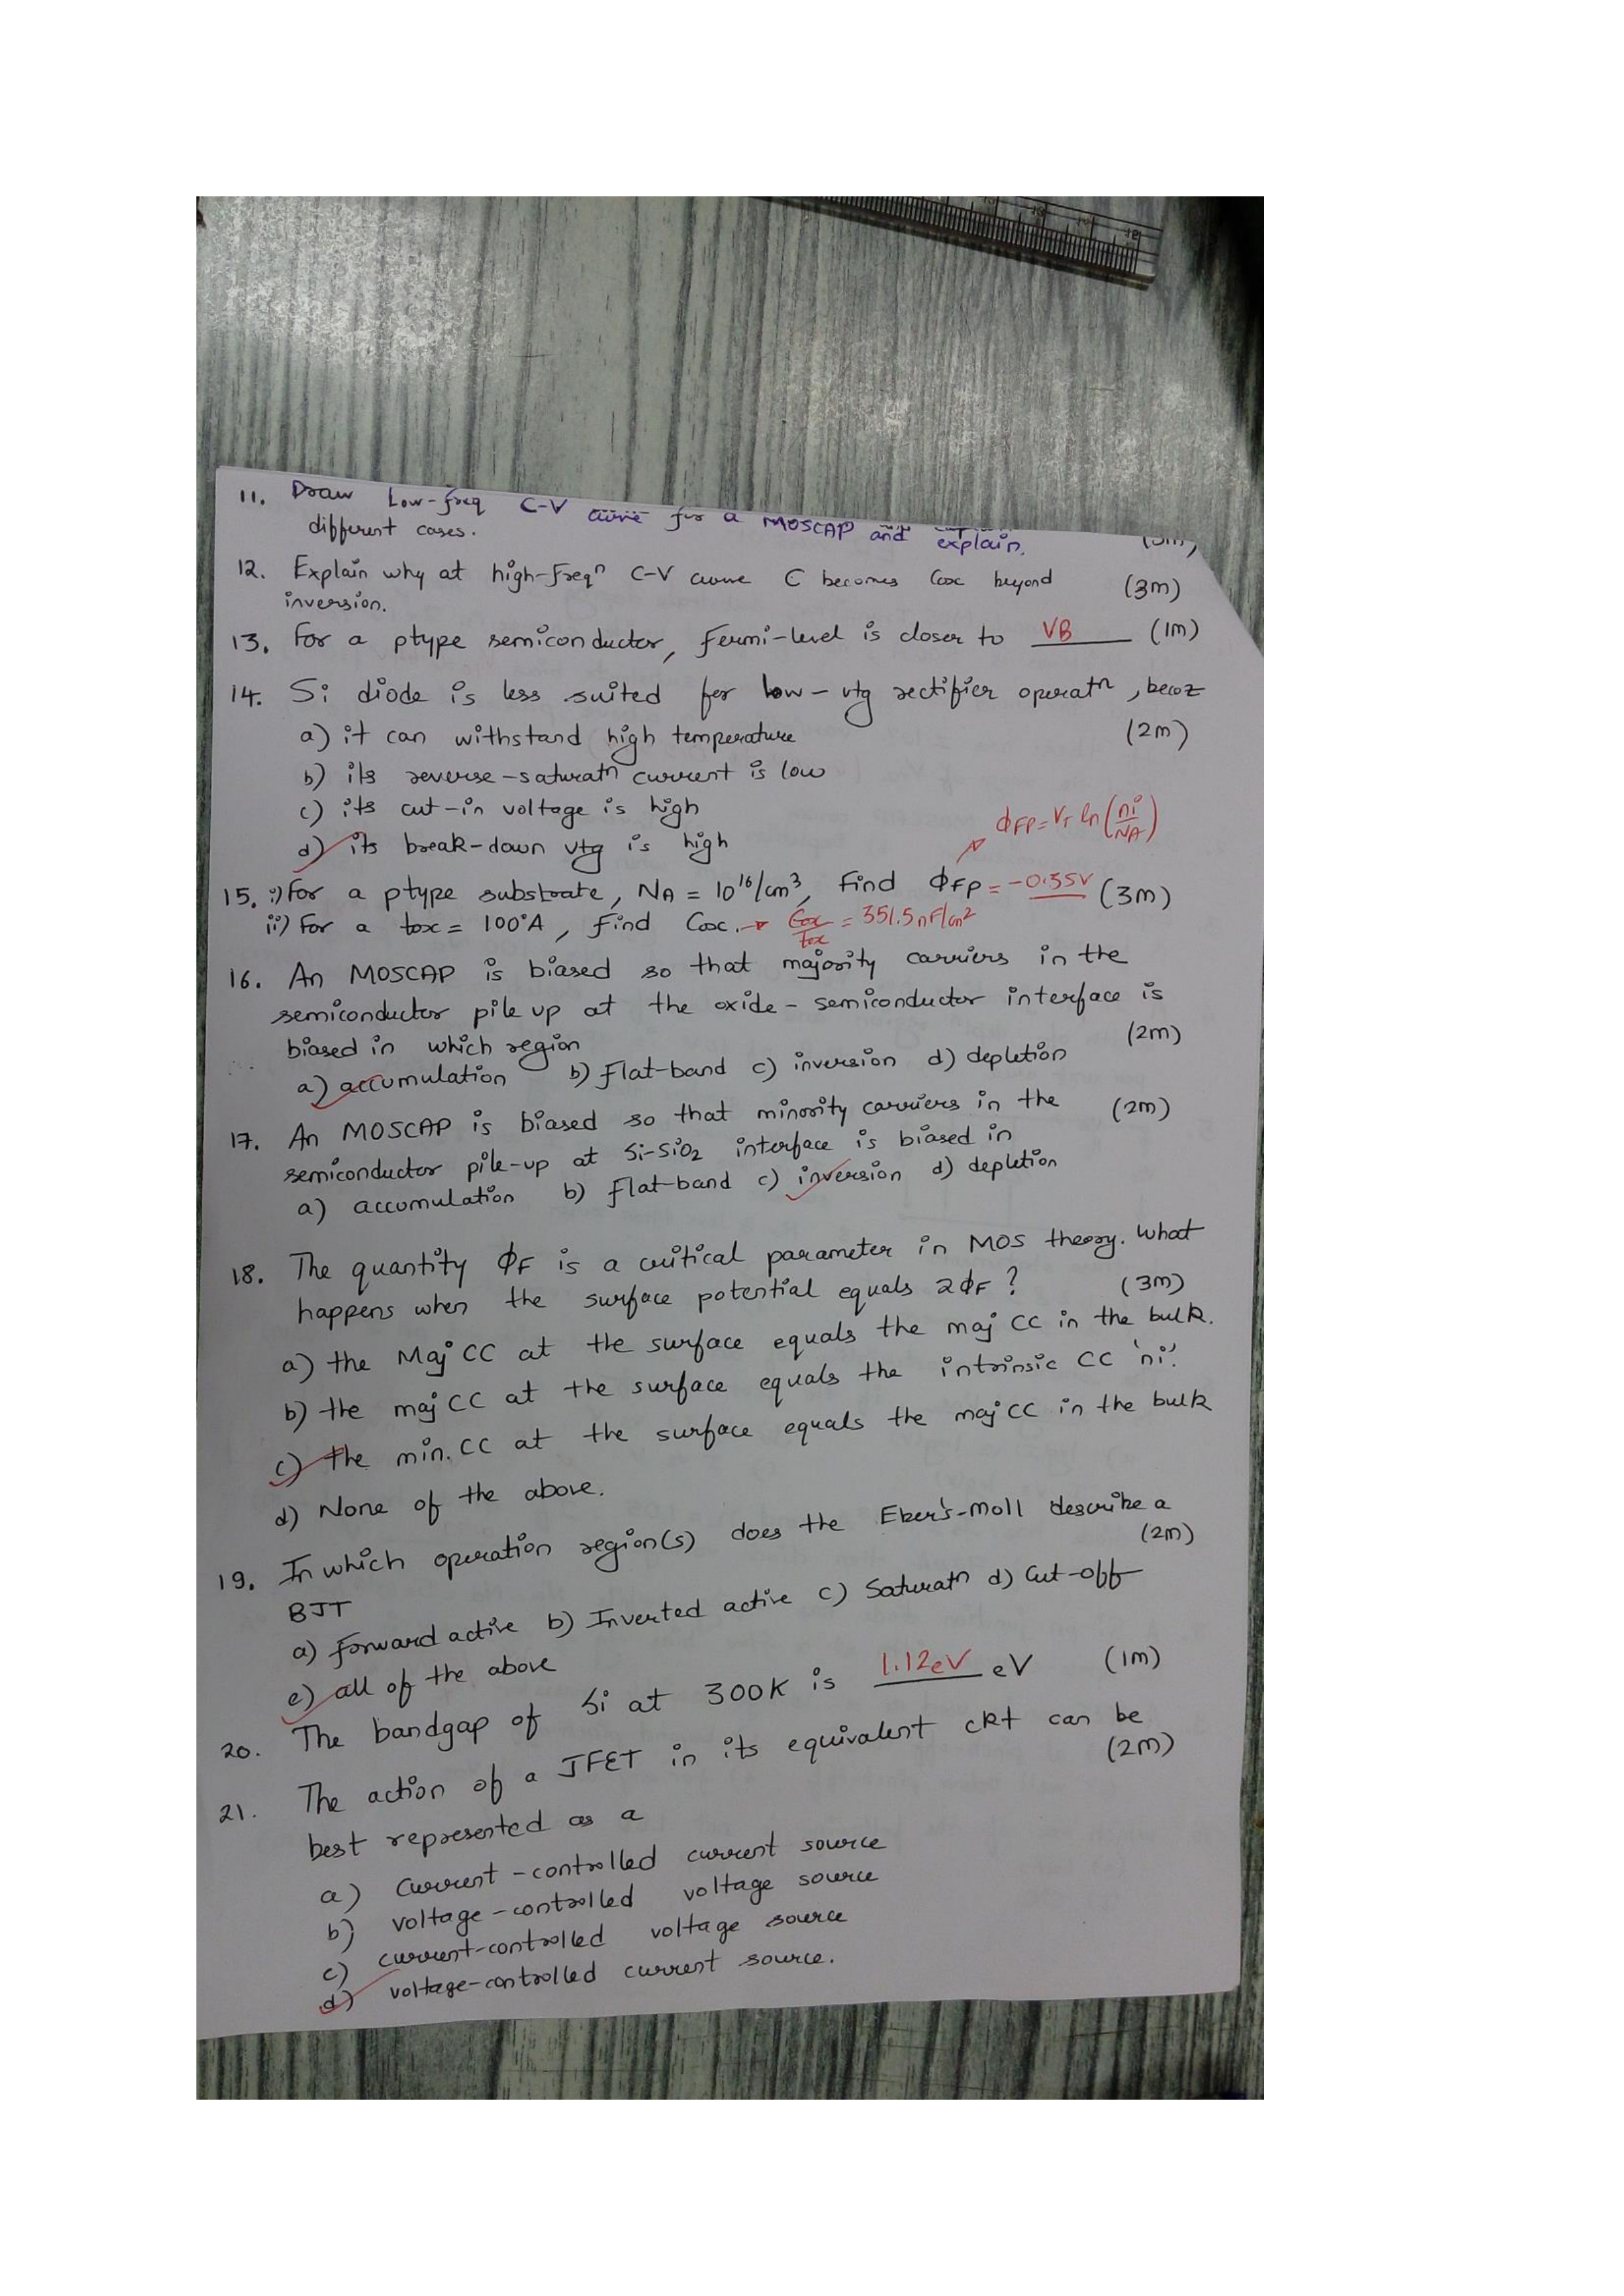 11. Draw Low-freq C-V curve for a MOSCAP and explain
different cases.
12. Explain why at high-freqn C-V curve C becomes Cox beyond (3m)
inversion.
13. For a ptype semiconductor, fermi-level is closer to VB (1m)
14. Si diode is less suited for low-vtg rectifier operatn, becoz
a) it can withstand high temperature (2m)
b) its reverse-saturatn current is low
c) its cut-in voltage is high
d) its break-down vtg is high
ΦFP = VT ln (ni/NA)
15. i) For a ptype substrate, NA = 10^16/cm^3, Find ΦFP = -0.35V (3m)
ii) For a tox = 100°A, find Cox. → Eox/tox = 351.5nF/cm^2
16. An MOSCAP is biased so that majority carriers in the
semiconductor pile up at the oxide-semiconductor interface is
biased in which region (2m)
a) accumulation b) flat-band c) inversion d) depletion
17. An MOSCAP is biased so that minority carriers in the (2m)
semiconductor pile-up at Si-SiO2 interface is biased in
a) accumulation b) flat-band c) inversion d) depletion
18. The quantity ΦF is a critical parameter in MOS theory. What
happens when the surface potential equals 2ΦF? (3m)
a) the Maj CC at the surface equals the maj CC in the bulk.
b) the maj CC at the surface equals the intrinsic CC 'ni'.
c) the min. CC at the surface equals the maj CC in the bulk
d) None of the above.
19. In which operation region(s) does the Eber's-Moll describe a
BJT (2m)
a) forward active b) Inverted active c) Saturatn d) Cut-off
e) all of the above
20. The bandgap of Si at 300K is 1.12eV eV (1m)
21. The action of a JFET in its equivalent ckt can be
best represented as a (2m)
a) Current-controlled current source
b) voltage-controlled voltage source
c) current-controlled voltage source
d) voltage-controlled current source.